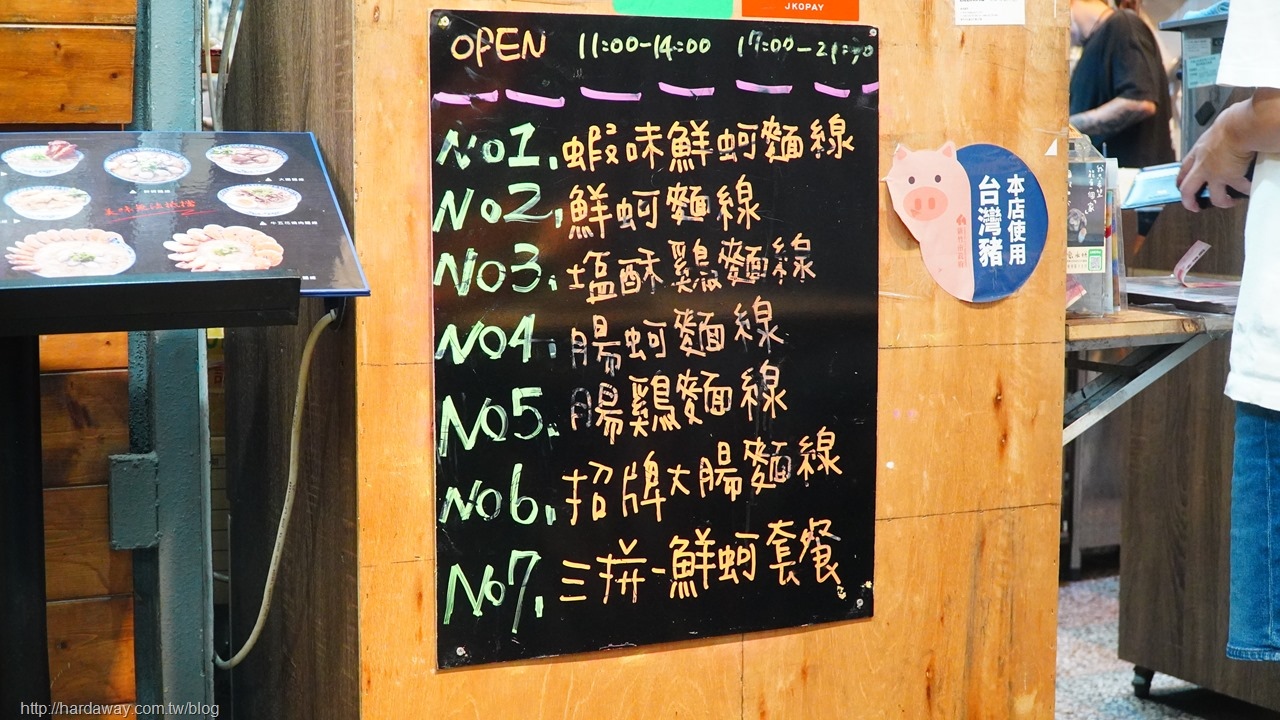 JKOPAY
OPEN 11:00-14:00 17:00-21:30
No1.蝦味鮮蚵麵線
No2.鮮蚵麵線
No3.塩酥鷄麵線
No4.腸蚵麵線
No5.腸鷄麵線
No6.招牌大腸麵線
No7.三拼-鮮蚵套餐
本店使用
台灣豬
http://hardaway.com.tw/blog